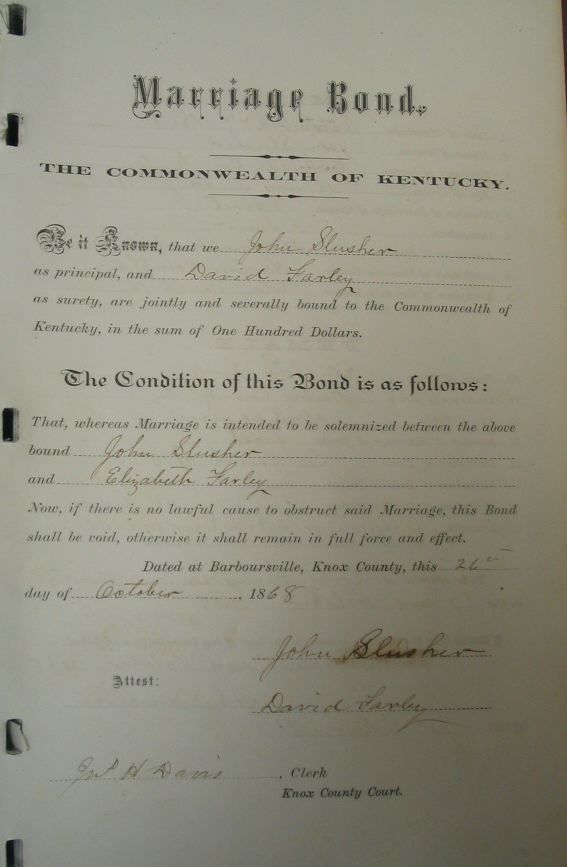 Marriage Bond.
THE COMMONWEALTH OF KENTUCKY.
Be it Known, that we John Slusher
as principal, and David Farley
as surety, are jointly and severally bound to the Commonwealth of
Kentucky, in the sum of One Hundred Dollars.
The Condition of this Bond is as follows:
That, whereas Marriage is intended to be solemnized between the above
bound John Slusher
and Elizabeth Farley
Now, if there is no lawful cause to obstruct said Marriage, this Bond
shall be void, otherwise it shall remain in full force and effect.
Dated at Barboursville, Knox County, this 26
day of October, 1868
John Slusher
Attest:
David Farley
H Davis, Clerk
Knox County Court.